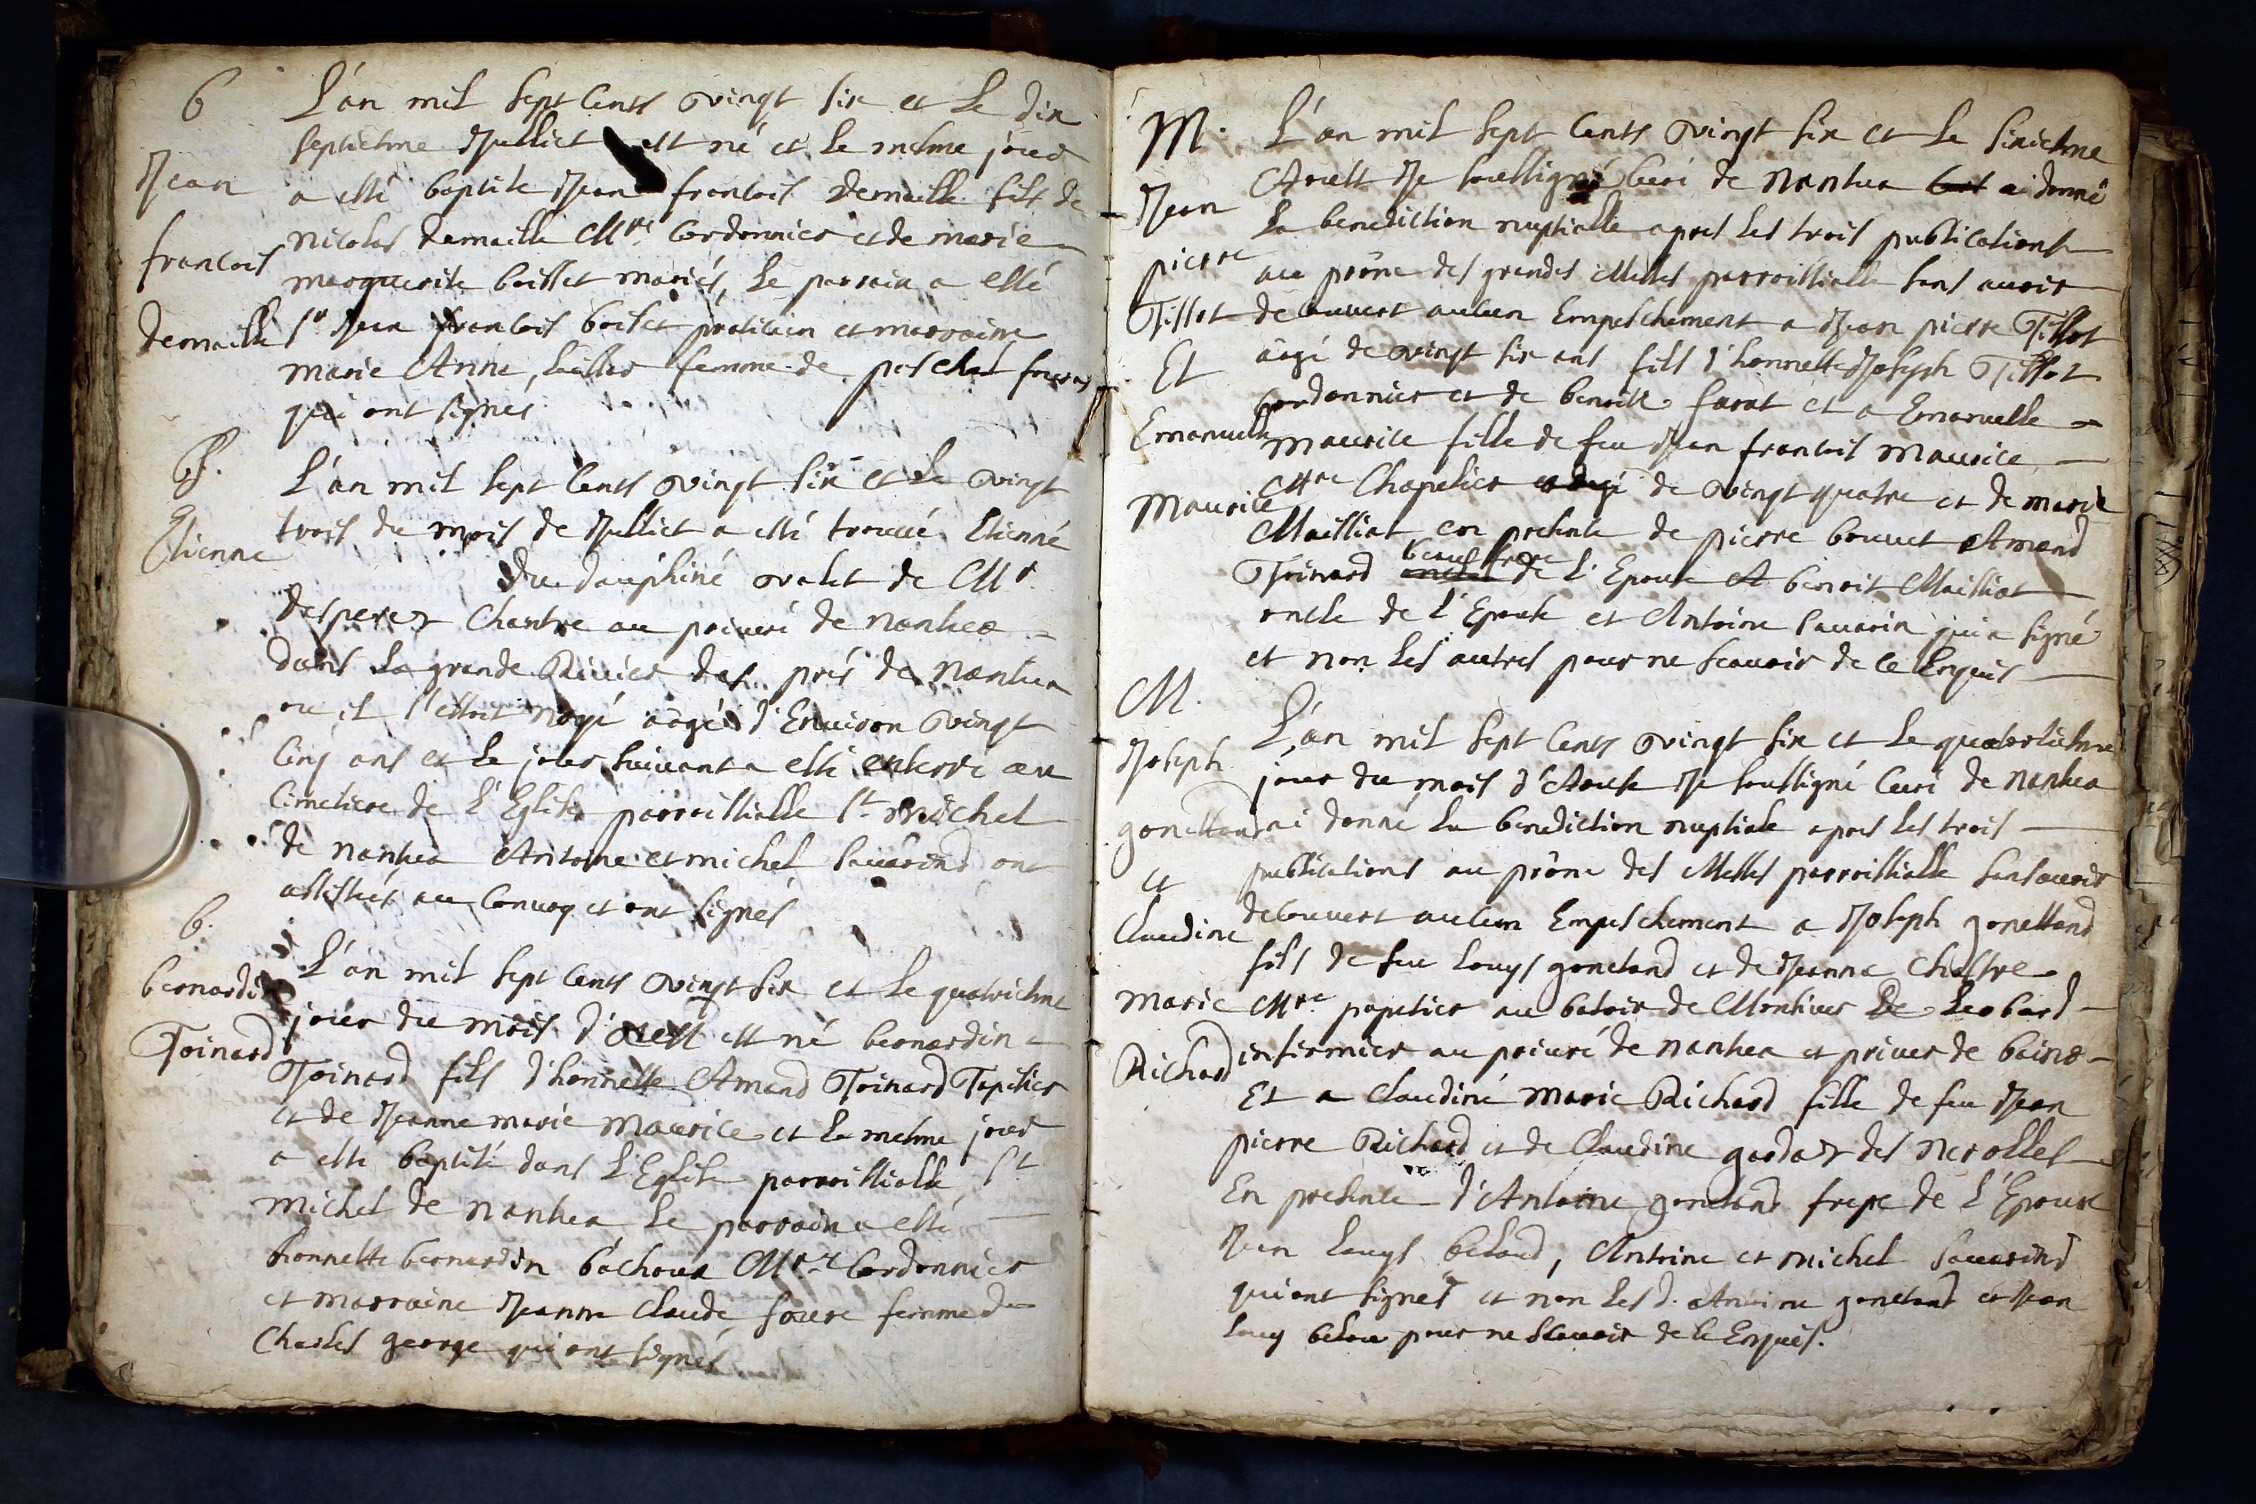 B
Jean
francois
demaille
L'an mil sept cents vingt six et le dix
septiesme Juilliet est né et le mesme jour
a esté baptise Jean francois demaille fils de
nicolas demaille Mre Cordonnier et de marie
marguerite boisset mariés, le parrain a esté
sr Jean francois boiset praticien et marraine
marie Anne, femme de paschal
qui ont signés
Etienne
L'an mil sept cents vingt six et le vingt
trois du mois de Julliet a esté trouué Etienne
du dauphiné valet de Mr
desperez Chantre au prieuré de nantua
dans la grande Riuiere des prés de nantua
ou il s'estoit noyé aagé d'Enuiron vingt
Cinq ans et le jour suiuant a esté enterré au
Cimetiere de l'Eglise parroissialle st michel
de nantua Antoine et michel sauarind ont
assistés au Conuoy et ont signés
b.
bernardin
Toinard
L'an mil sept cents vingt six et le quatriesme
jour du mois d'aoust est né bernardin
Toinard fils d'honneste Amand Toinard Tapisier
et de Jeanne marie maurice et le mesme jour
a esté baptisé dans l'Eglise parroissialle st
michel de nantua le parrain a esté
honneste bernardin bachoux Mre Cordonnier
et marraine Jeanne Claude foure femme de
Charles george qui ont signés
M.
Jean
pierre
Tissot
Et
Emanuelle
Maurice
L'an mil sept cents vingt six et le sixiesme
Aoust Je soussigné Curé de nantua ai donné
la benediction nuptialle apres les trois publications
au prône des grandes Messes parroissialle sans auoir
decouuert aucun Empeschement a Jean pierre Tissot
aagé de vingt six ans fils d'honneste Joseph Tissot
Cordonnier et de benoite farat et a Emanuelle
Maurice fille de feu Jean francois Maurice
Mre Chapelier aagé de vingt quatre et de marie
Mailliat, en presence de pierre bouuet Amand
Toinard beau frere de l'Epouse et benoit Mailliat
oncle de l'Epouse et Antoine sauarin qui a signé
et non les autres pour ne scauoir de ce Enquis
M.
Joseph
gonettand
et
Claudine
Marie
Richard
L'an mil sept cents vingt six et le quatorsiesme
jour du mois d'Aoust Je soussigné Curé de nantua
ai donné la benediction nuptiale apres les trois
publications au prône des Messes parroissialle sans auoir
decouuert aucun Empeschement a Joseph gonettand
fils de feu Louys gonetand et de Jeanne Chastre
Mre papetier au batoir de Monsieur De Leobard
infirmier au prieuré de nantua et prieur de
Et a Claudine Marie Richard fille de feu Jean
pierre Richard et de Claudine godaz des nerolles
En presence d'Antoine gonetand frere de l'Epoux
Jean Louys beloud, Antoine et michel sauarind
qui ont signés et non les d. Antoine gonetand et Jean
Louy belou pour ne scauoir de ce Enquis.